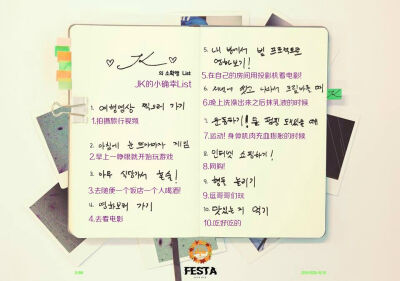 JK
의 소확행 List
JK的小确幸List
1. 여행영상 찍으러 가기
1.拍摄旅行视频
2. 아침에 눈 뜨자마자 게임
2.早上一睁眼就开始玩游戏
3. 아무 식당가서 혼술!
3.去随便一个饭店一个人喝酒!
4. 영화보러 가기
4.去看电影
5. 내 방에서 빔 프로젝트로
영화보기!
5.在自己的房间用投影机看电影!
6. 저녁에 씻고 나와서 크림바를 때
6.晚上洗澡出来之后抹乳液的时候
7. 운동하기! 몸 펌핑 되었을 때
7.运动! 身体肌肉充血膨胀的时候
8. 인터넷 쇼핑하기!
8.网购!
9. 형들 놀리기
9.逗哥哥们玩
10. 맛있는 거 먹기
10.吃好吃的
FESTA